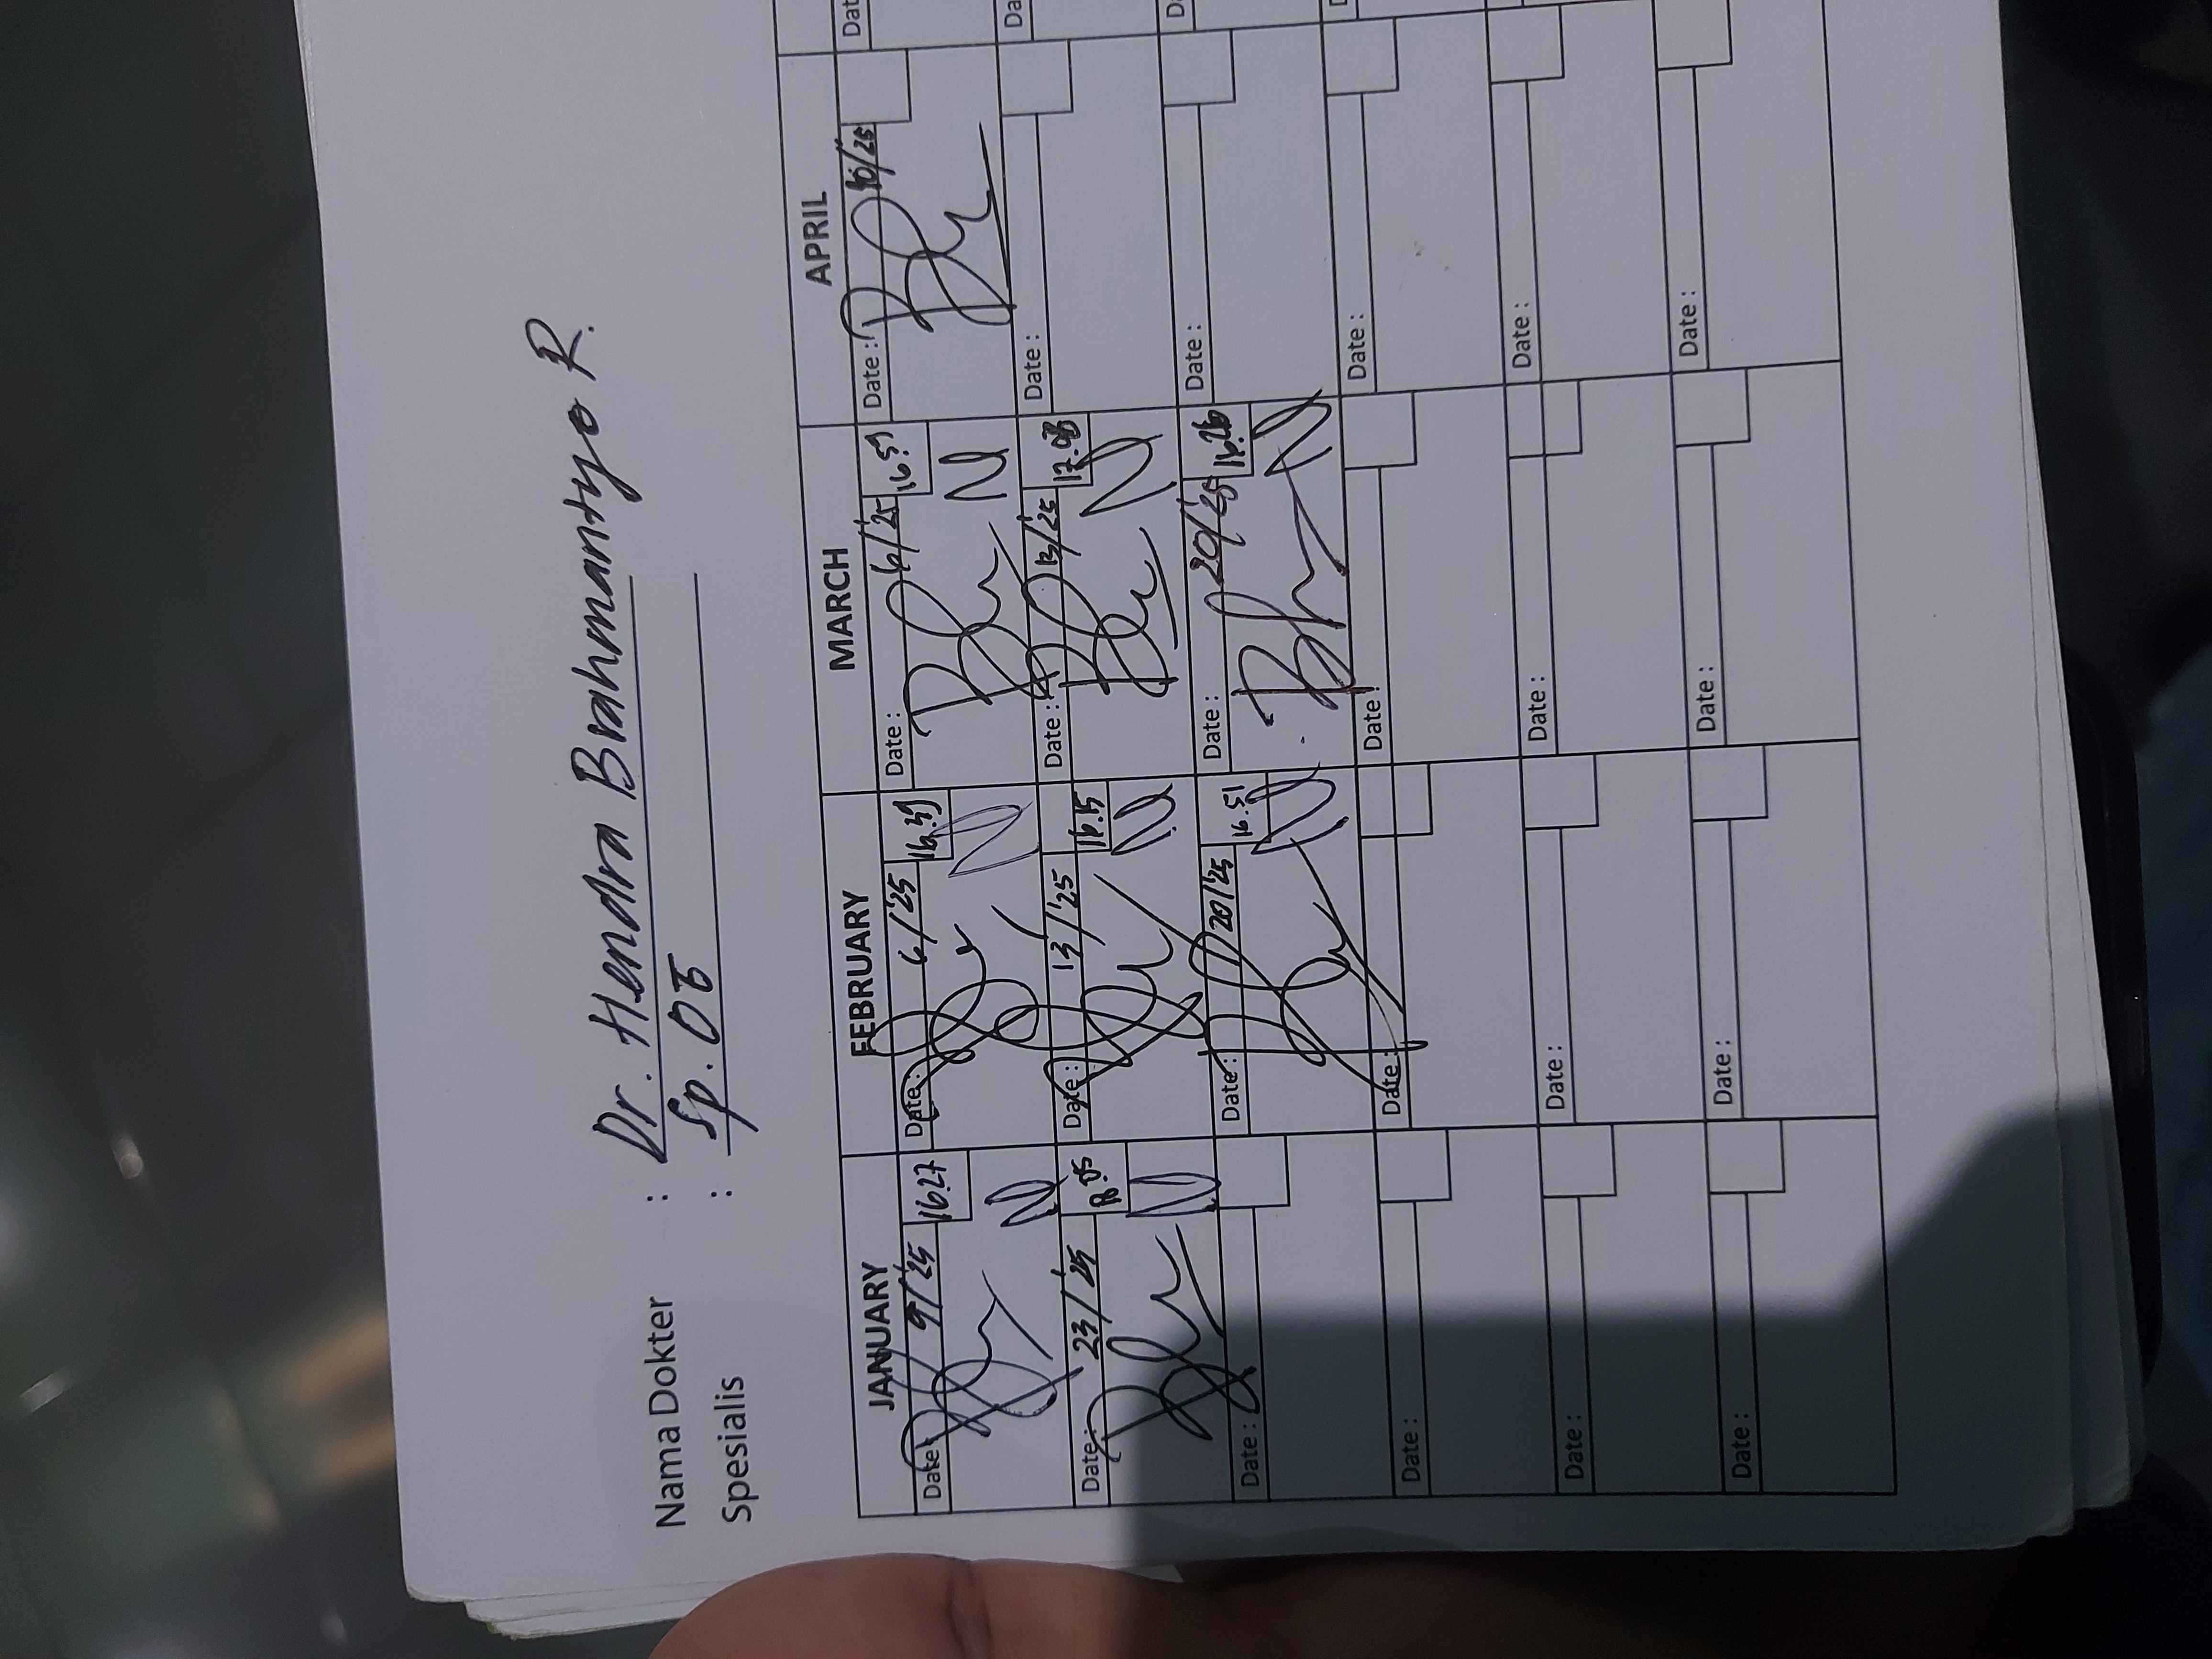 Nama Dokter : Dr. Hendra Brahmantyo R.
Spesialis : Sp. OT
JANUARY FEBRUARY MARCH APRIL
Date : 9/'25 16.27 Date : 6/'25 16.39 Date : 6/'25 16.59 Date : 10/25 Dat
Date : 23/'25 Date : 13/'25 16.15 Date : 13/'25 17.08 Date : Da
Date : Date : 20/'25 16.51 Date : 20/'25 16.26 Date : Da
Date : Date : Date : Date :
Date : Date : Date : Date :
Date : Date : Date : Date :